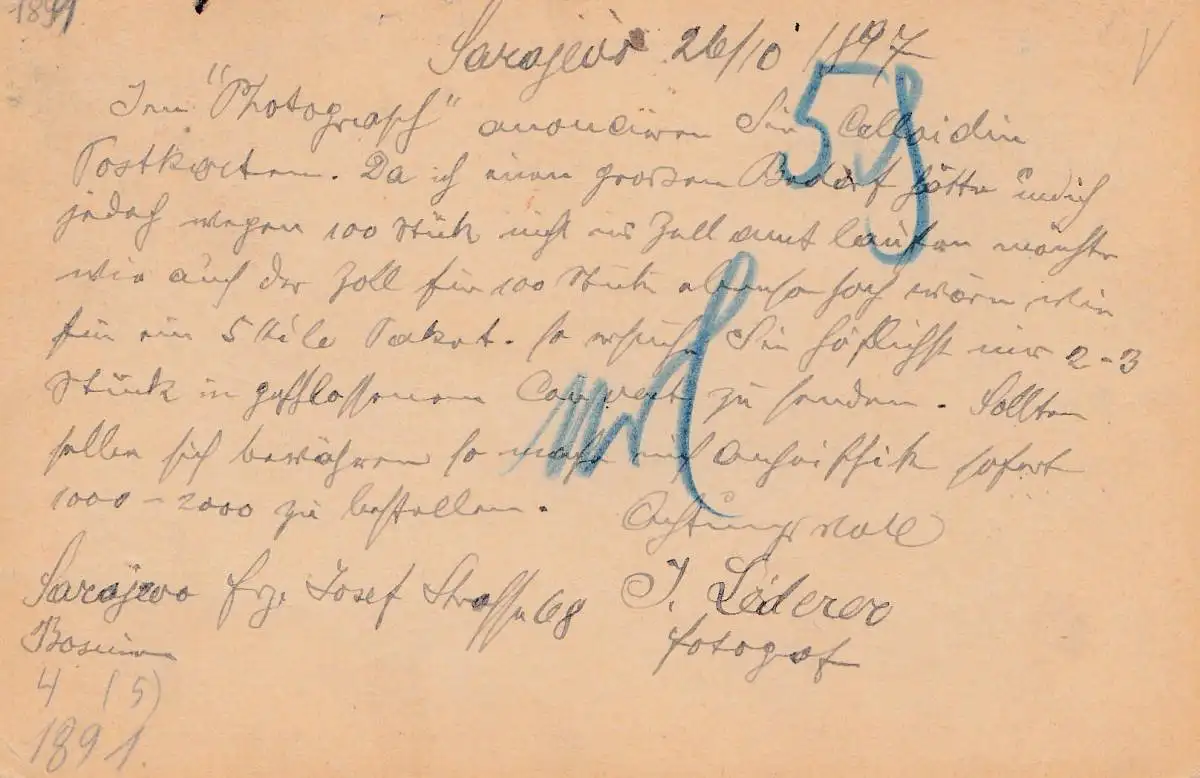 1891
Sarajevo 26/10 1897
Im "Photograph" anoncieren Sie Celloidin
Postkarten. Da ich einen großen Bedarf hätte mich
jedoch wegen 100 Stück nicht ins Zollamt laufen möchte
wie auch der Zoll für 100 Stück ebenso hoch wären wie
für ein 5 Kilo Paket. so ersuche Sie höflichst mir 2-3
Stück in geschlossenem Couvert zu senden. Sollten
selbe sich bewähren so mache mich anheischik sofort
1000-2000 zu bestellen. Achtungsvoll
Sarajevo Frz. Josef Strasse 68 J. Lederer
Bosnien fotograf
4 (5)
1891.